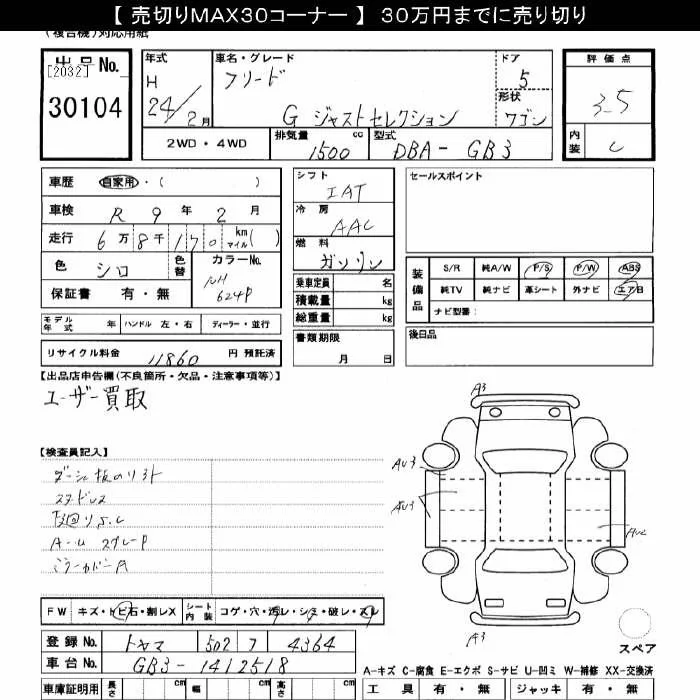 【 売切りMAX30コーナー 】 30万円までに売り切り
(複合機)対応用紙
出品No.
[2032]
30104
年式
H
24/2月
車名・グレード
フリード
G ジャストセレクション
ドア
5
形状
ワゴン
評価点
3.5
内装
C
2WD・4WD
排気量
1500 cc
型式
DBA- GB3
車歴 自家用・( )
車検 R 9年 2月
走行 6万8千170 km マイル( )
色 シロ
色替
カラーNo.
NH
624P
保証書 有・無
シフト
IAT
冷房
AAC
燃料
ガソリン
乗車定員 名
積載量 kg
総重量 kg
書類期限
月 日
セールスポイント
装備品
S/R 純A/W P/S P/W ABS
純TV 純ナビ 革シート 外ナビ エアB
ナビ型番:
後日品
モデル年式 年 ハンドル 左・右 ディーラー・並行
リサイクル料金 11860 円 預託済
【出品店申告欄(不良箇所・欠品・注意事項等)】
ユーザー買取
【検査員記入】
スタドレス
A3
AU3
AU3
AU2
A3
スペア
FW キズ・トビ石・割レX シート内装 コゲ・穴・汚レ・シミ・破レ・スレ
登録No. トヤマ 502 7 4364
車台No. GB3-1412518
A-キズ C-腐食 E-エクボ S-サビ U-凹ミ W-補修 XX-交換済
車庫証明用 長さ cm 幅 cm 高さ cm
工具 有・無 ジャッキ 有・無